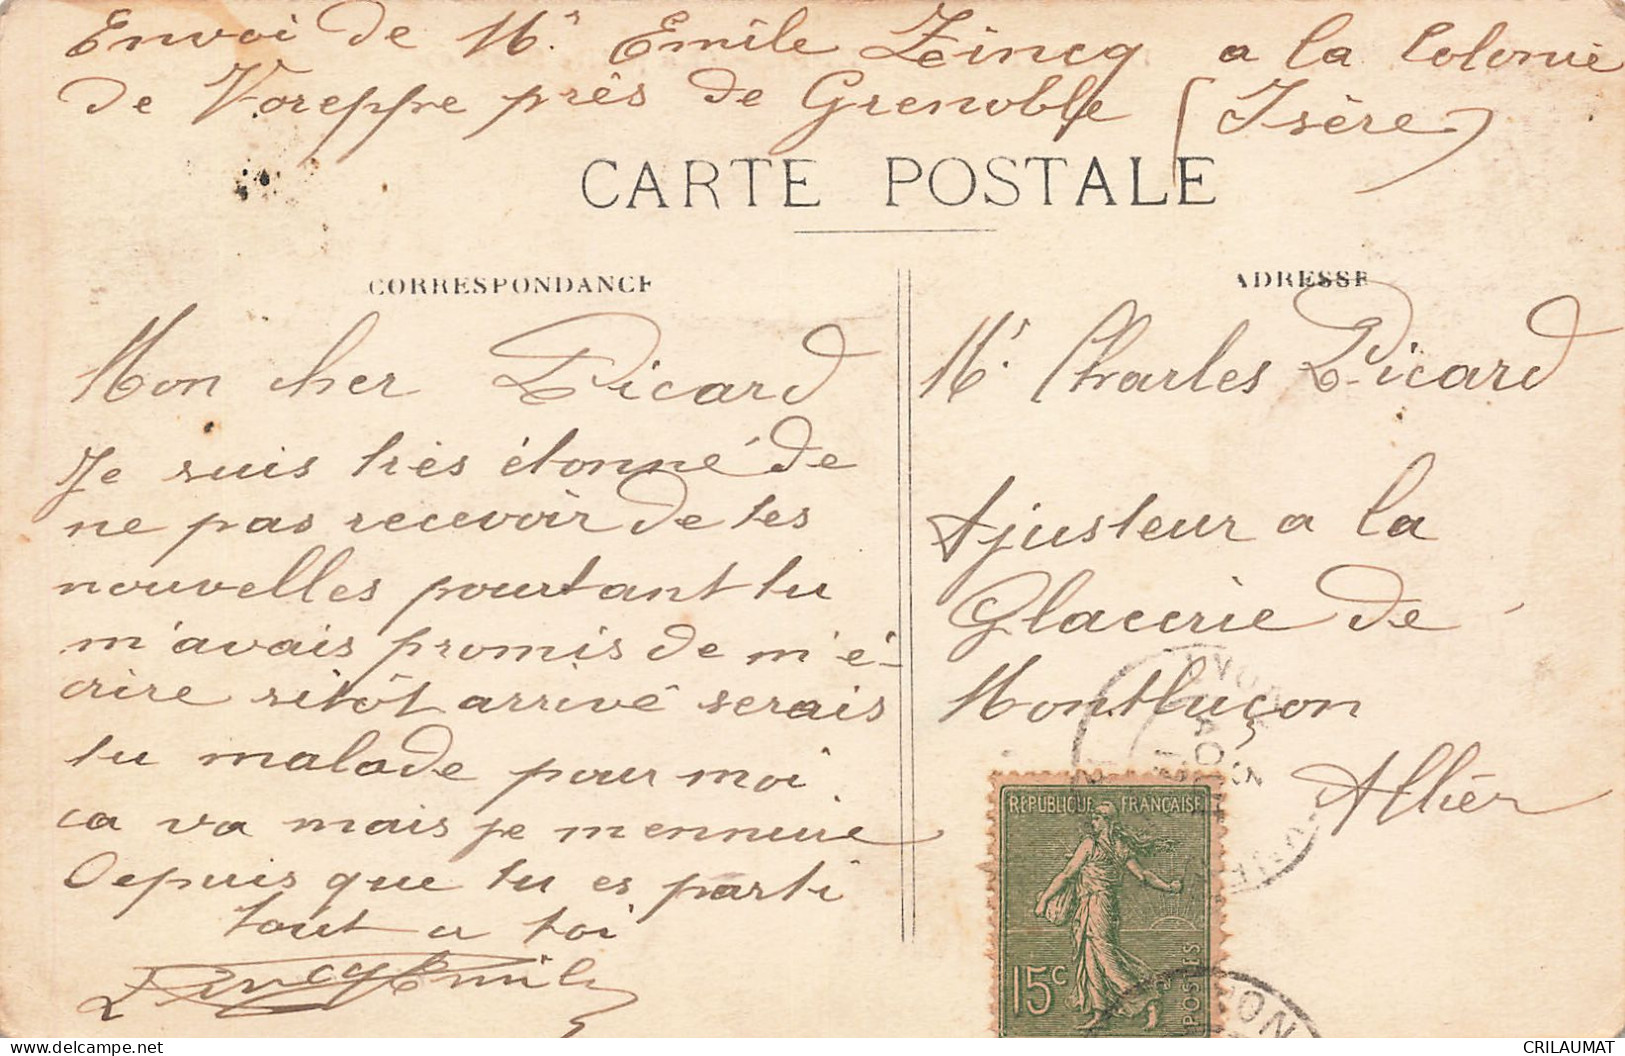 Envoi de Mr Emile Zincq a la Colonie
de Voreppe près de Grenoble (Isère)
CARTE POSTALE
CORRESPONDANCE
Mon cher Picard
Je suis très étonné de
ne pas recevoir de tes
nouvelles pourtant tu
m'avais promis de m'é-
crire sitôt arrivé serais
tu malade pour moi
ca va mais je mennuie
Depuis que tu es parti
tout a toi
Zincq Emile
ADRESSE
Mr Charles Picard
Ajusteur a la
Glacerie de
Montluçon
Allier
RÉPUBLIQUE FRANÇAISE
15c
POSTES
CRILAUMAT